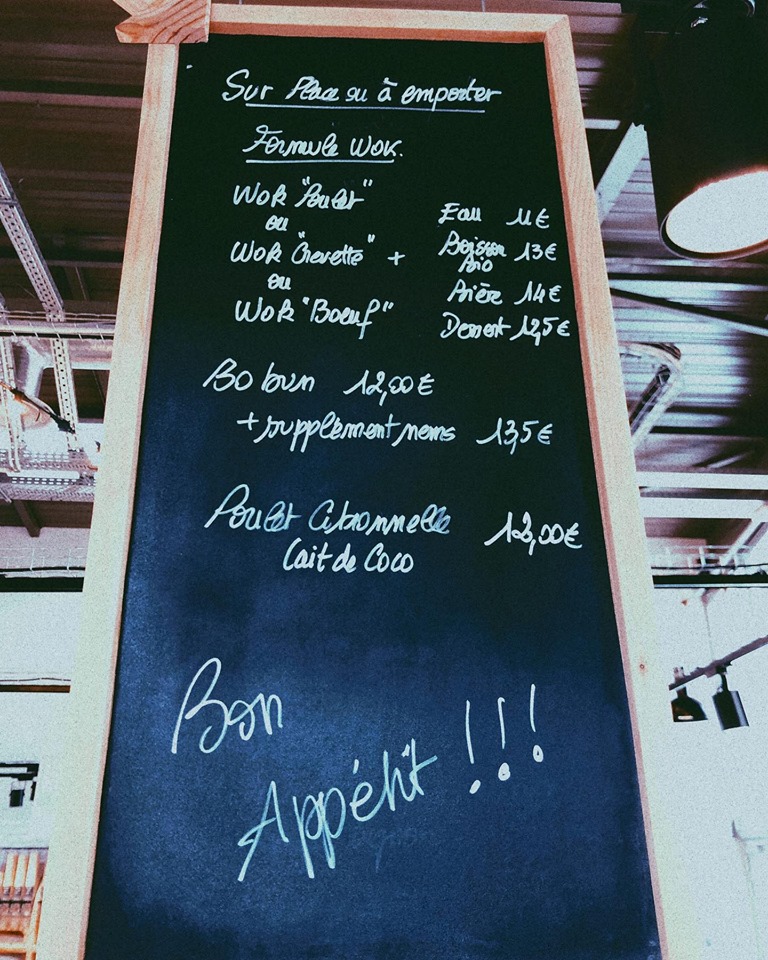 Sur Place ou à emporter
Formule Wok.
Wok "Poulet"
ou
Wok "Crevette" +
ou
Wok "Boeuf"
Eau 11€
Boisson 13€
Bio
Bière 14€
Dessert 12,5€
Bo bun 12,00€
+ supplément nems 13,5€
Poulet Citronnelle 12,00€
Lait de Coco
Bon
Appétit !!!